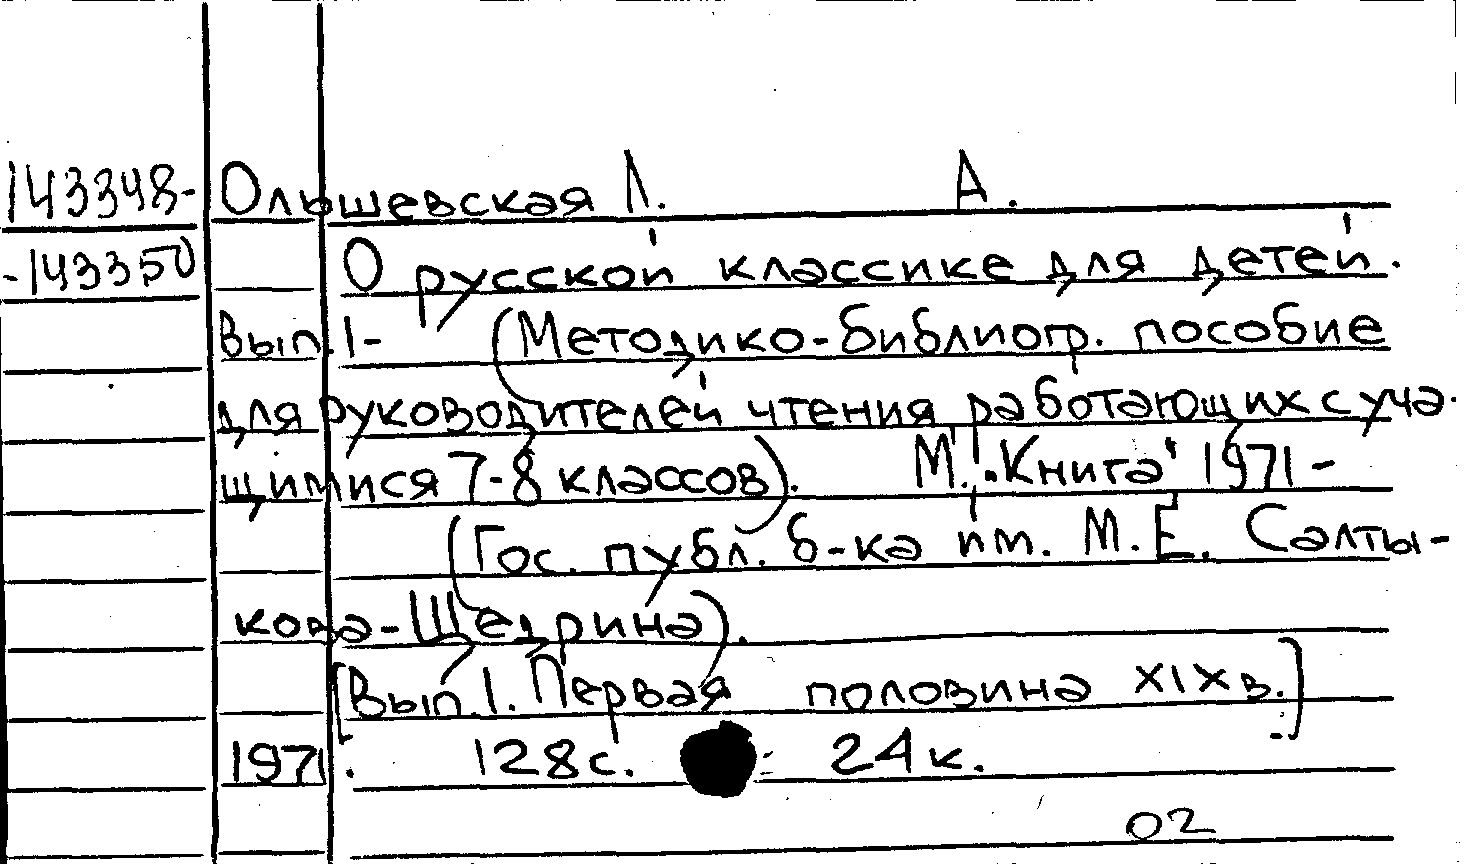 143348- Ольшевская Л. А.
-143350 О русской классике для детей.
Вып. 1- (Методико-библиогр. пособие
для руководителей чтения работающих с уча-
щимися 7-8 классов). М., "Книга" 1971-
(Гос. публ. б-ка им. М. Е. Салты-
кова-Щедрина).
[Вып. 1. Первая половина XIX в.]
1971. 128 с. 24 к.
02